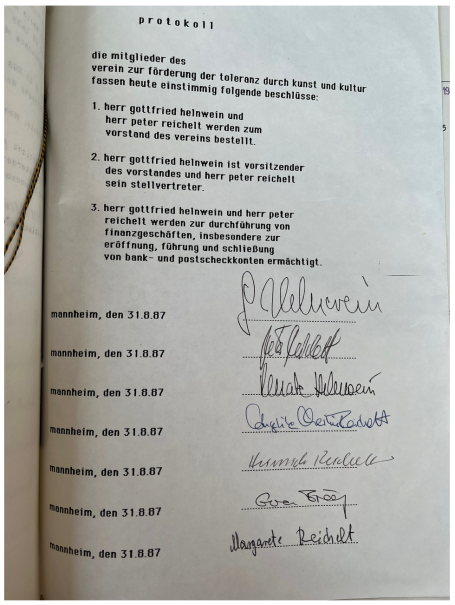 protokoll
die mitglieder des
verein zur förderung der toleranz durch kunst und kultur
fassen heute einstimmig folgende beschlüsse:
1. herr gottfried helnwein und
herr peter reichelt werden zum
vorstand des vereins bestellt.
2. herr gottfried helnwein ist vorsitzender
des vorstandes und herr peter reichelt
sein stellvertreter.
3. herr gottfried helnwein und herr peter
reichelt werden zur durchführung von
finanzgeschäften, insbesondere zur
eröffnung, führung und schließung
von bank- und postscheckkonten ermächtigt.
mannheim, den 31.8.87 G Helnwein
mannheim, den 31.8.87
mannheim, den 31.8.87 Renate Helnwein
mannheim, den 31.8.87
mannheim, den 31.8.87 Heinrich Reichelt
mannheim, den 31.8.87
mannheim, den 31.8.87 Margarete Reichelt